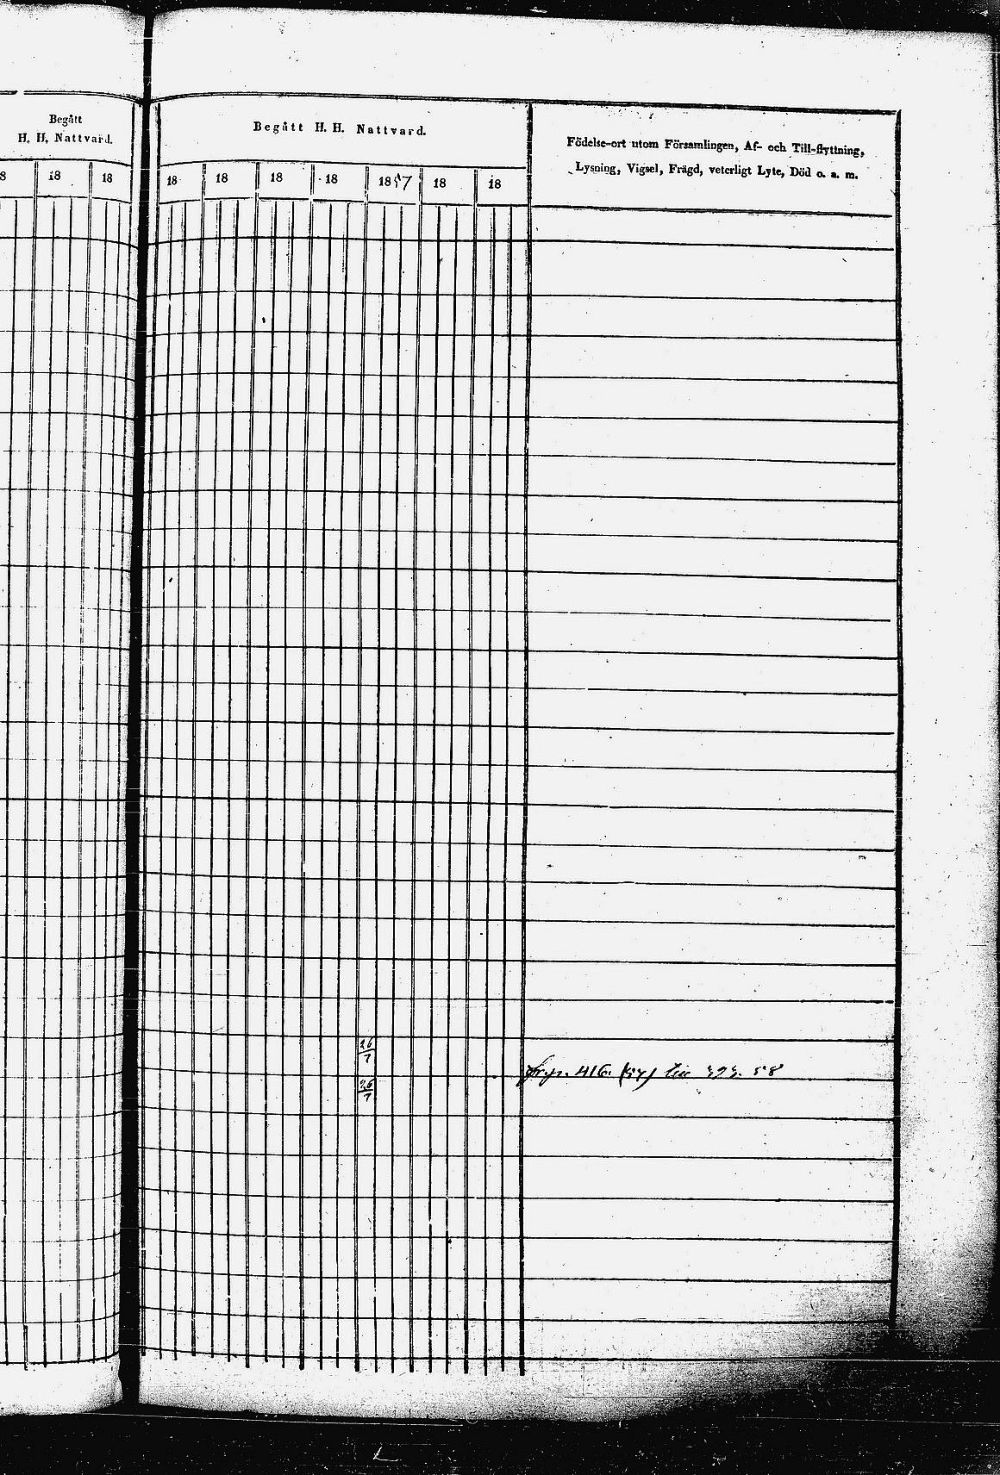 Begått
H. H. Nattvard.
8 18 18
Begått H. H. Nattvard.
18 18 18 18 1857 18 18
Födelse-ort utom Församlingen, Af- och Till-flyttning,
Lysning, Vigsel, Frägd, veterligt Lyte, Död o. s. m.
26/7
fr. p. 416. (57) till 393. 58
26/7